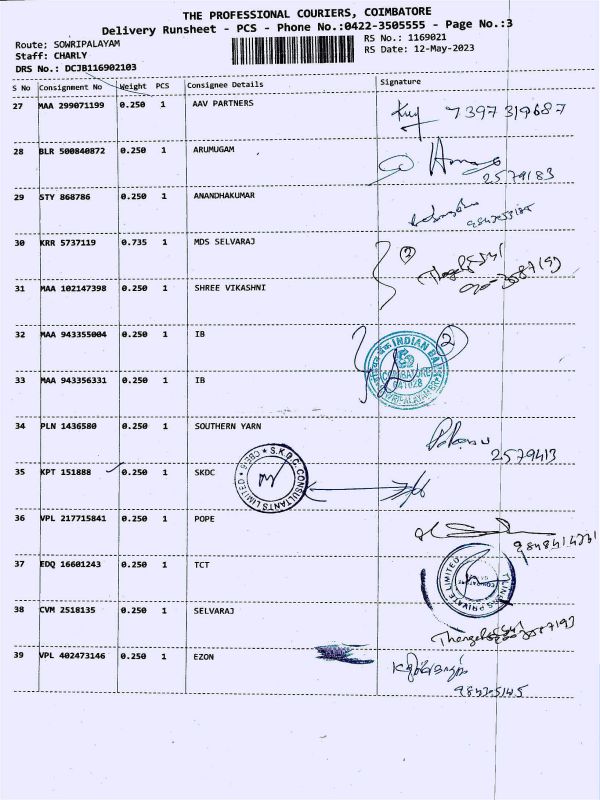 THE PROFESSIONAL COURIERS, COIMBATORE
Delivery Runsheet - PCS - Phone No.:0422-3505555 - Page No.:3
Route: SOWRIPALAYAM
RS No.: 1169021
Staff: CHARLY
RS Date: 12-May-2023
DRS No.: DCJB116902103
S No Consignment No Weight PCS Consignee Details Signature
27 MAA 299071199 0.250 1 AAV PARTNERS 7397319687
28 BLR 500840872 0.250 1 ARUMUGAM
2579183
29 STY 868786 0.250 1 ANANDHAKUMAR
30 KRR 5737119 0.735 1 MDS SELVARAJ 2
31 MAA 102147398 0.250 1 SHREE VIKASHNI
32 MAA 943355004 0.250 1 IB 2
INDIAN BANK
COIMBATORE
641028
33 MAA 943356331 0.250 1 IB
34 PLN 1436580 0.250 1 SOUTHERN YARN
2579413
35 KPT 151888 0.250 1 SKDC
S.K.D.C. CONSULTANTS LIMITED
36 VPL 217715841 0.250 1 POPE
37 EDQ 16601243 0.250 1 TCT
PRIVATE LIMITED
38 CVM 2518135 0.250 1 SELVARAJ
39 VPL 402473146 0.250 1 EZON